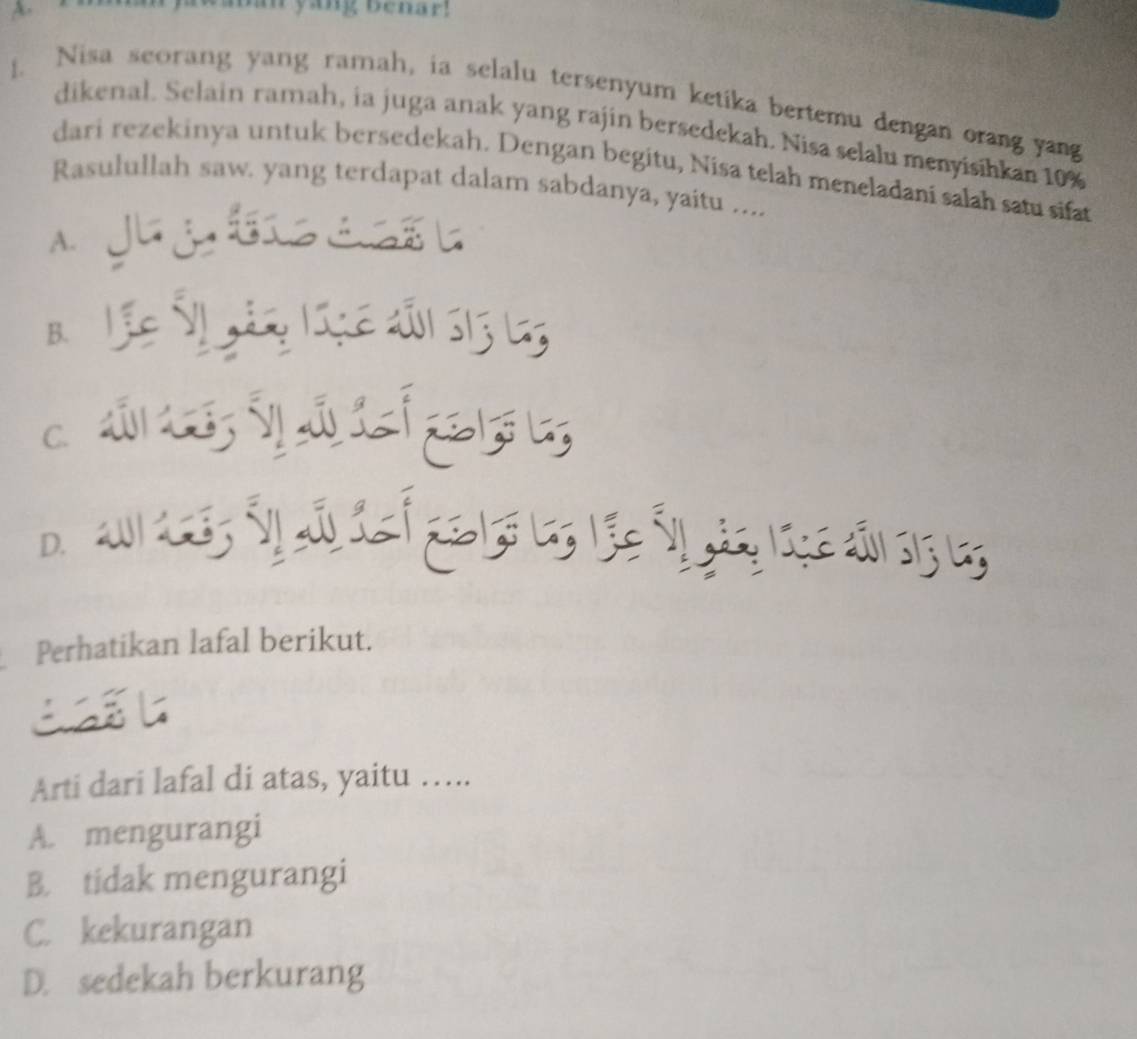 yang benar!
1. Nisa seorang yang ramah, ia selalu tersenyum ketika bertemu dengan orang yang
dikenal. Selain ramah, ia juga anak yang rajin bersedekah. Nisa selalu menyisihkan 10%
dari rezekinya untuk bersedekah. Dengan begitu, Nisa telah meneladani salah satu sifat
Rasulullah saw. yang terdapat dalam sabdanya, yaitu ....
A. مَا نَقَصَتْ صَدَقَةٌ مِنْ مَالٍ
B. وَمَا زَادَ اللَّهُ عَبْدًا بِعَفْوٍ إِلَّا عِزًّا
C. وَمَا تَوَاضَعَ أَحَدٌ لِلَّهِ إِلَّا رَفَعَهُ اللَّهُ
D. وَمَا زَادَ اللَّهُ عَبْدًا بِعَفْوٍ إِلَّا عِزًّا وَمَا تَوَاضَعَ أَحَدٌ لِلَّهِ إِلَّا رَفَعَهُ اللَّهُ
Perhatikan lafal berikut.
مَا نَقَصَتْ
Arti dari lafal di atas, yaitu .....
A. mengurangi
B. tidak mengurangi
C. kekurangan
D. sedekah berkurang